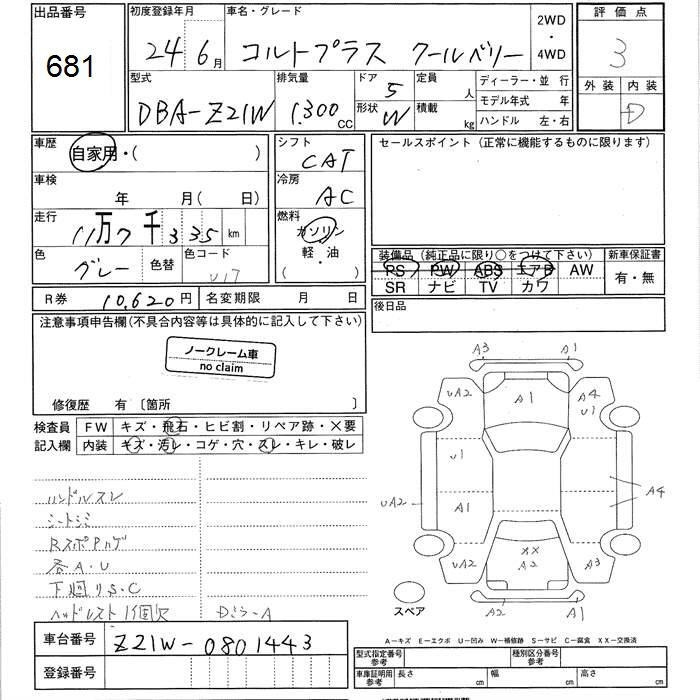 出品番号
681
初度登録年月
24 6月
車名・グレード
コルトプラス クールベリー
2WD
・
4WD
評価点
3
外装 内装
D
型式
DBA-Z21W
排気量
1.300 CC
ドア 5
形状 W
定員 人
積載 kg
ディーラー・並行
モデル年式 年
ハンドル 左・右
車歴
自家用・( )
車検
年 月( 日)
走行
11万7千335 km
色
グレー
色替
色コード
U17
シフト
CAT
冷房
AC
燃料
ガソリン
軽・油
( )
セールスポイント (正常に機能するものに限ります)
装備品 (純正品に限り○をつけて下さい)
PS PW ABS エアB AW
SR ナビ TV カワ
新車保証書
有・無
R券 10,620円
名変期限 月 日
後日品
注意事項申告欄(不具合内容等は具体的に記入して下さい)
ノークレーム車
no claim
修復歴 有 〔箇所 〕
検査員
記入欄
FW キズ・飛石・ヒビ割・リペア跡・×要
内装 キズ・汚レ・コゲ・穴・スレ・キレ・破レ
ハンドルスレ
シートシミ
RスポPハゲ
各A・U
下廻りS・C
ヘッドレスト1個欠
Dミラ-A
A3 A1
UA2 A1 A4
U1
U1
UA2 A1 A4
UA2 XX A3
A2
A2 A1
スペア
A-キズ E-エクボ U-凹み W-補修跡 S-サビ C-腐食 XX-交換済
車台番号 Z21W-0801443
登録番号
型式指定番号
参考
種別区分番号
参考
車庫証明用
参考
長さ cm
幅 cm
高さ cm